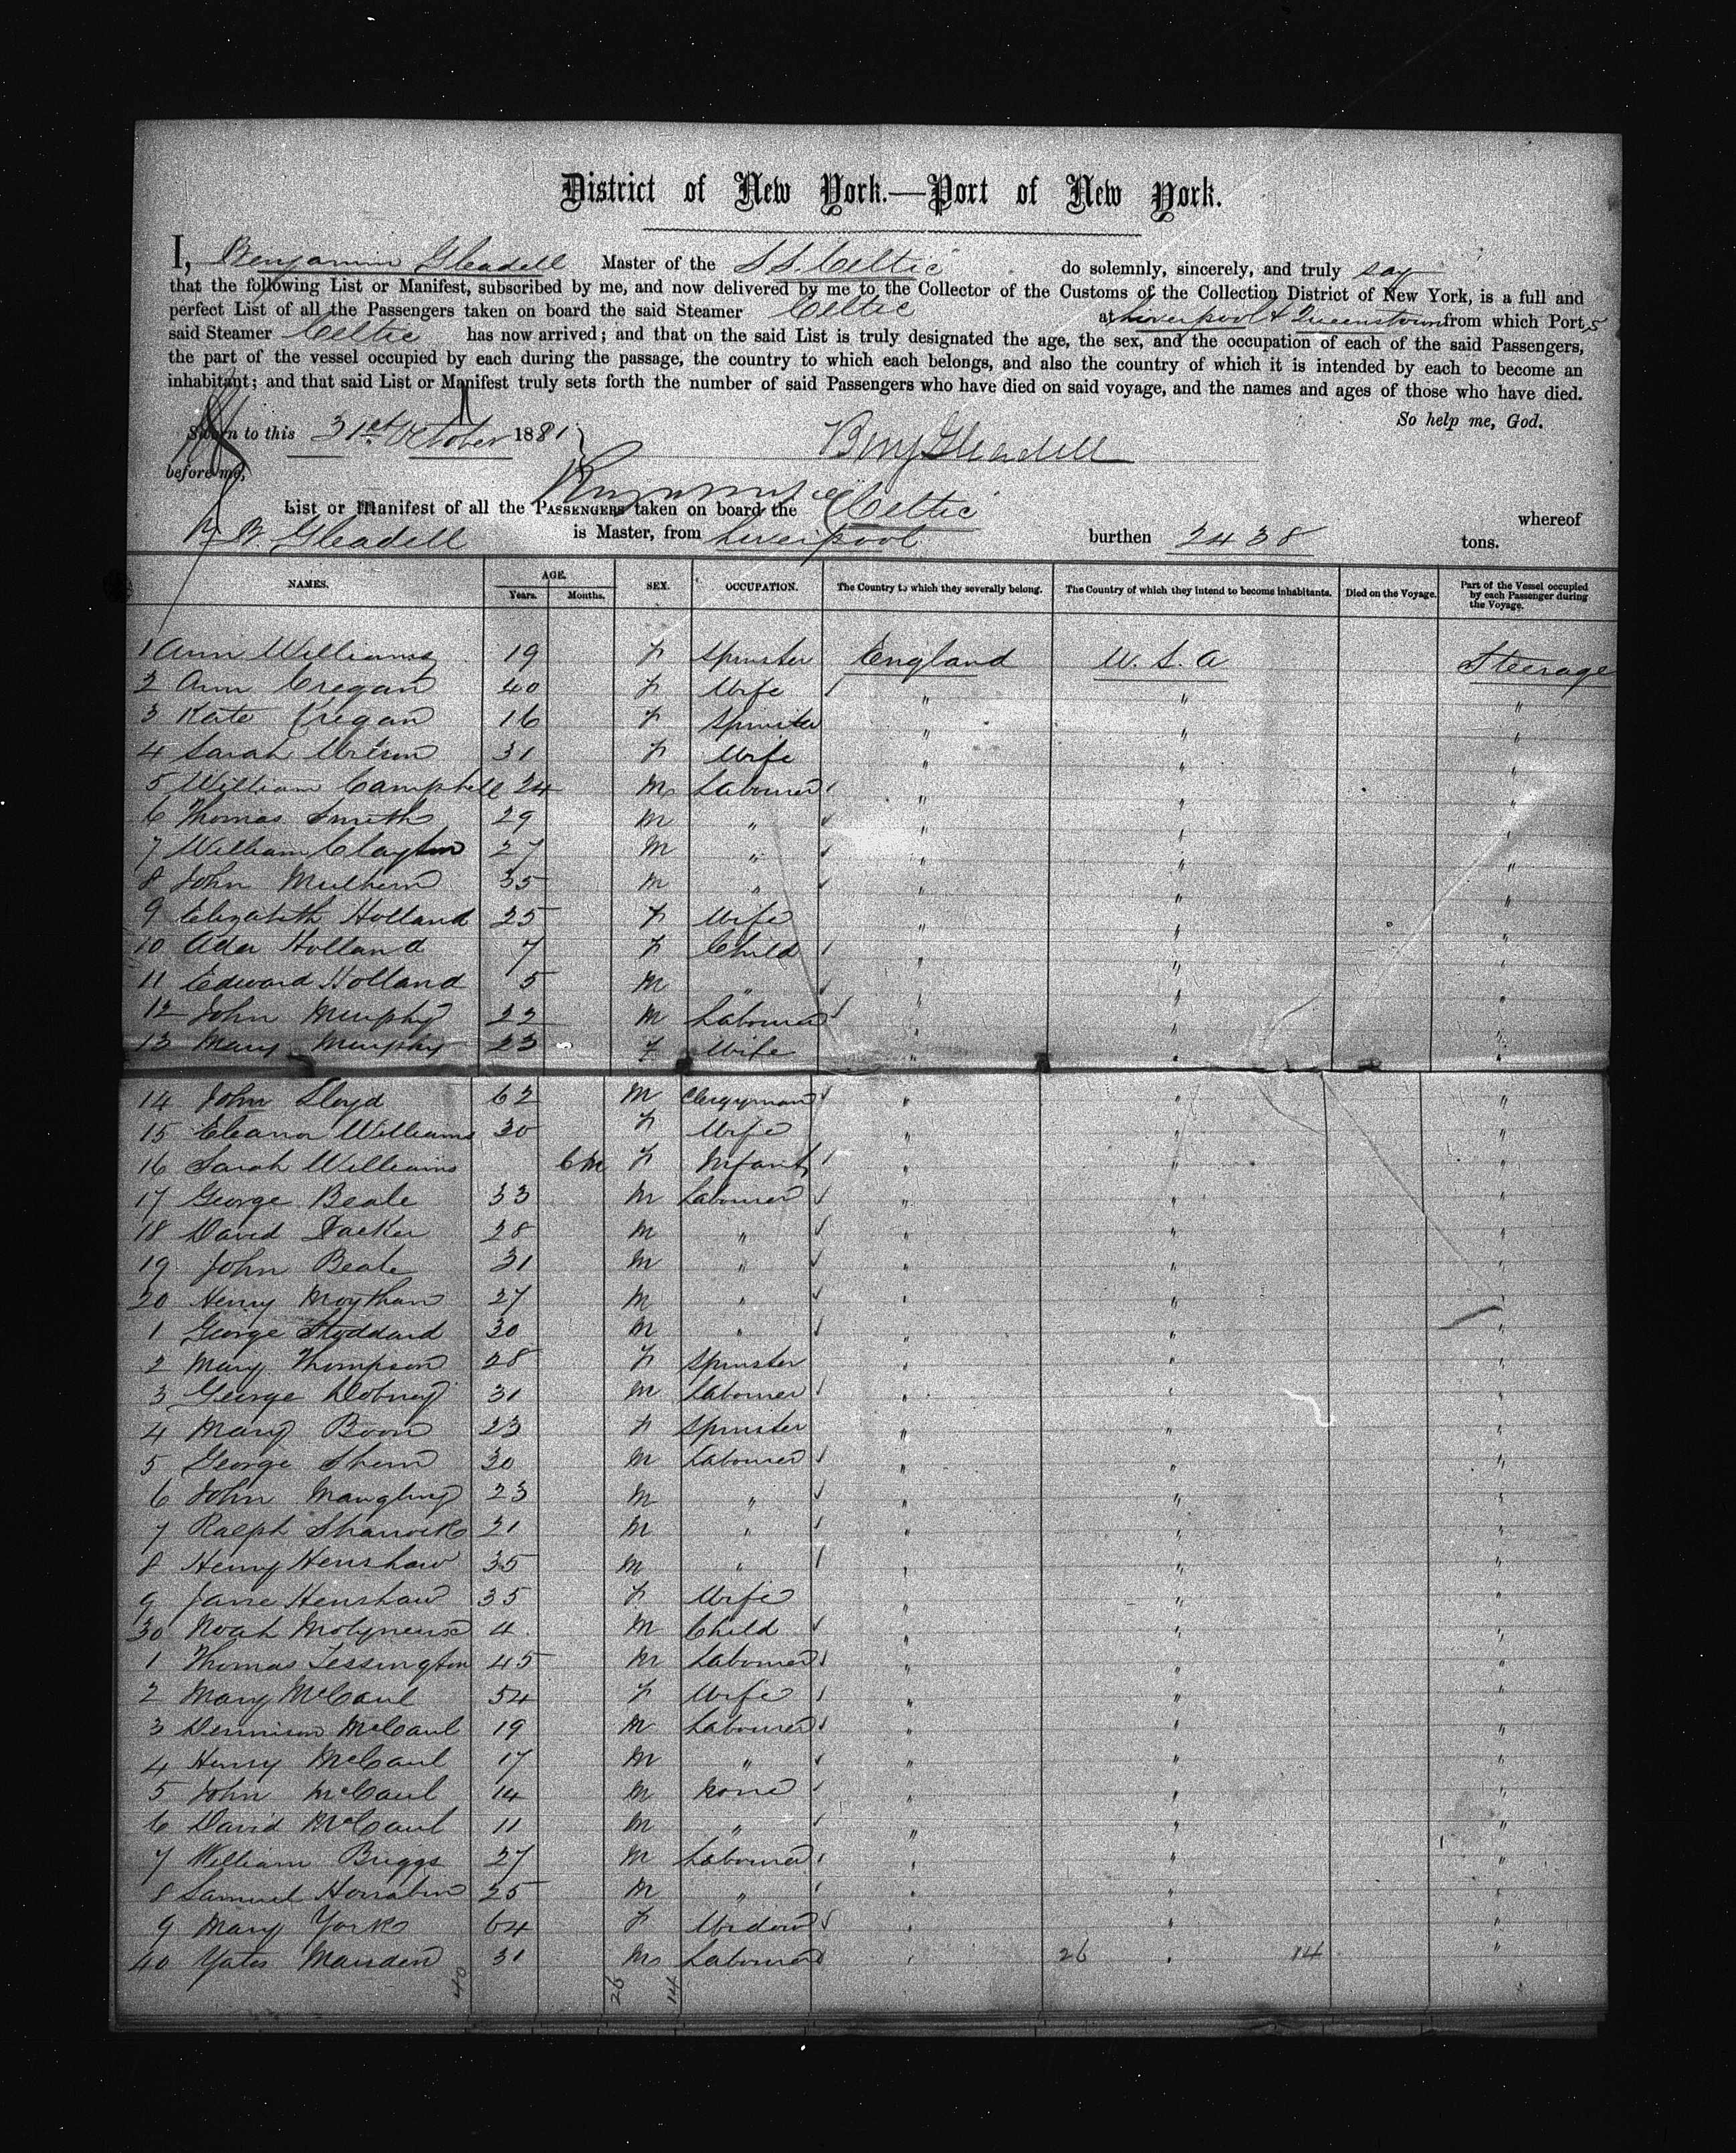 District of New York.—Port of New York.
I, Benjamin Gleadell Master of the S.S. Celtic do solemnly, sincerely, and truly say
that the following List or Manifest, subscribed by me, and now delivered by me to the Collector of the Customs of the Collection District of New York, is a full and
perfect List of all the Passengers taken on board the said Steamer Celtic at Liverpool & Queenstown from which Port,s
said Steamer Celtic has now arrived; and that on the said List is truly designated the age, the sex, and the occupation of each of the said Passengers,
the part of the vessel occupied by each during the passage, the country to which each belongs, and also the country of which it is intended by each to become an
inhabitant; and that said List or Manifest truly sets forth the number of said Passengers who have died on said voyage, and the names and ages of those who have died.
So help me, God.
Sworn to this 31st October 1881
Benj Gleadell
before me,
List or Manifest of all the Passengers taken on board the Celtic whereof
B. Gleadell is Master, from Liverpool burthen 2438 tons.
NAMES. AGE. Years. Months. SEX. OCCUPATION. The Country to which they severally belong. The Country of which they intend to become inhabitants. Died on the Voyage. Part of the Vessel occupied by each Passenger during the Voyage.
1 Ann Williams 19 F Spinster England U.S.A Steerage
2 Ann Cregan 40 F Wife " " "
3 Kate Cregan 16 F Spinster " " "
4 Sarah 31 F Wife " " "
5 William Campbell 24 M Labourer " " "
6 Thomas Smith 29 M " " " "
7 William Clayton 27 M " " " "
8 John Mulhern 35 M " " " "
9 Elizabeth Holland 25 F Wife " " "
10 Ada Holland 7 F Child " " "
11 Edward Holland 5 M " " " "
12 John Murphy 22 M Labourer " " "
13 Mary Murphy 23 F Wife " " "
14 John Lloyd 62 M Clergyman " " "
15 Eleanor Williams 30 F Wife " " "
16 Sarah Williams 6M F Infant " " "
17 George Beale 33 M Labourer " " "
18 David Dacker 28 M " " " "
19 John Beale 31 M " " " "
20 Henry Moythan 27 M " " " "
1 George Stoddard 30 M " " " "
2 Mary Thompson 28 F Spinster " " "
3 George Dobney 31 M Labourer " " "
4 Mary Boon 23 F Spinster " " "
5 George Shern 30 M Labourer " " "
6 John Mangling 23 M " " " "
7 Ralph 21 M " " " "
8 Henry Henshaw 35 M " " " "
9 Jane Henshaw 35 F Wife " " "
30 Noah Molyneux 4 M Child " " "
1 Thomas Tessington 45 M Labourer " " "
2 Mary McCaul 54 F Wife " " "
3 Dennison McCaul 19 M Labourer " " "
4 Henry McCaul 17 M " " " "
5 John McCaul 14 M None " " "
6 David McCaul 11 M " " " "
7 William Briggs 27 M Labourer " " "
8 Samuel Horrabin 25 M " " " "
9 Mary York 64 F Widow " " "
40 Yates Marsden 31 M Labourer " 26 " 14 "
40 26 14